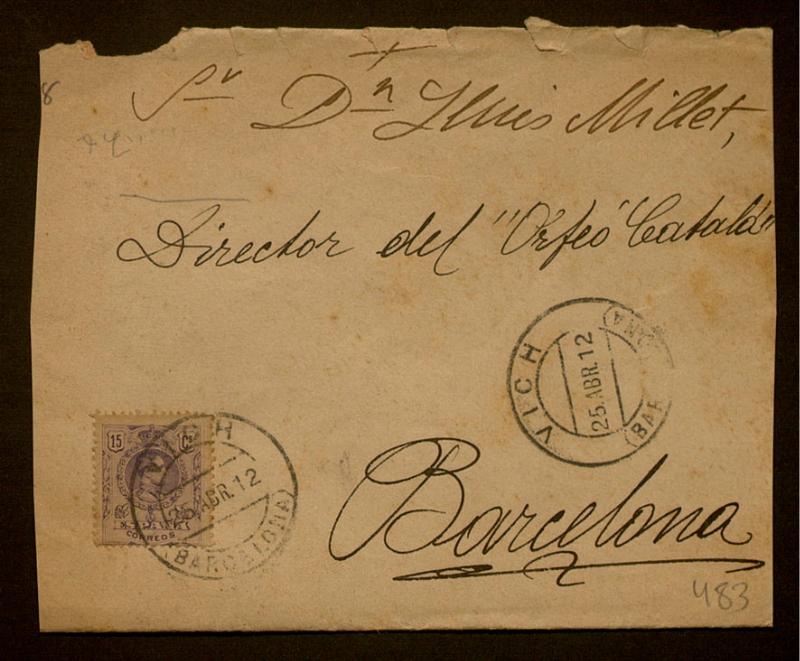 8
Sr Dn Lluis Millet,
Director del "Orfeó Catalá"
VICH
25.ABR.12
(BARCELONA)
15 Cs
CORREOS
VICH
25.ABR.12
(BARCELONA)
Barcelona
483